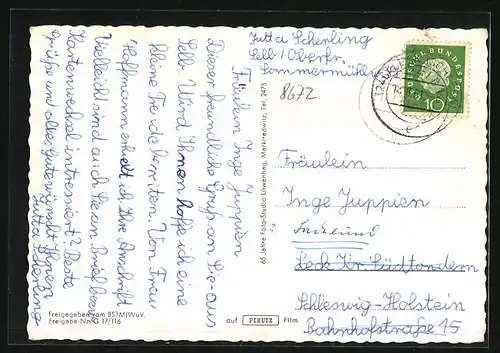 Jutta Scherling
Selb / Oberfr.
Sommermühle
8672
Fräulein Inge Juppien
Dieser freundliche Gruß an Sie aus
Selb wird Ihnen hoffe ich eine
kleine Freude bereiten. Von Frau
Hoffmann erhielt ich Ihre Anschrift
Vielleicht sind auch Sie an Briefben.
Kartenwechsel intressiert? Beste
Grüße und alles Gute wünscht Ihnen
Jutta Scherling
65 Jahre Foto-Studio Löwenhag, Marktredwitz, Tel. 2475
DEUTSCHE BUNDESPOST
10
Fräulein
Inge Juppien
Leck Kr. Südtondern
Schleswig-Holstein
Bahnhofstrasse 15
Freigegeben vom BSTM/WuV.
Freigabe-Nr. G 17/116
auf PERUTZ Film